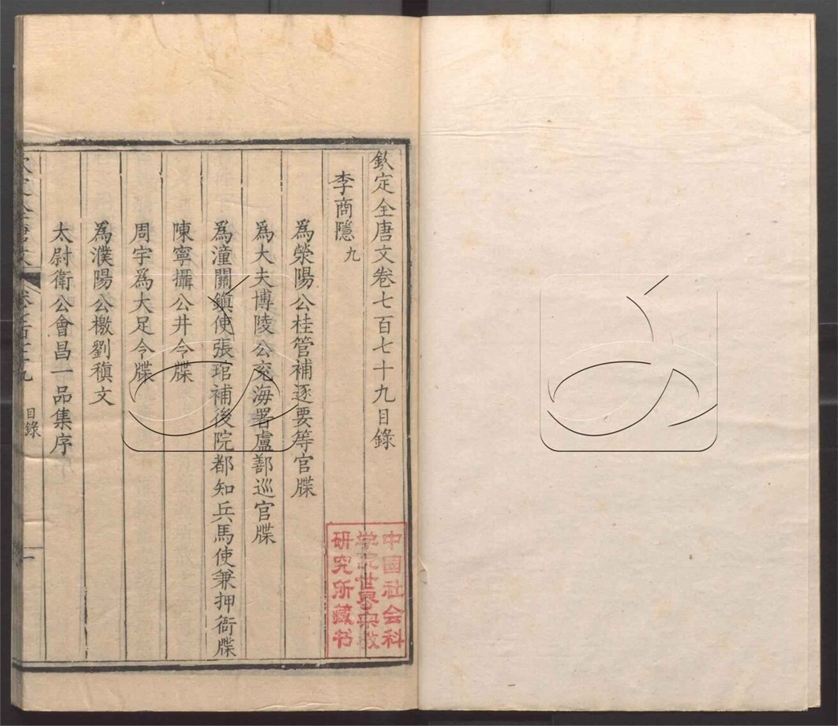 欽定全唐文卷七百七十九目錄
李商隱九
為滎陽公桂管補逐要等官牒
為大夫博陵公兗海署盧鄯巡官牒
為潼關鎮使張琯補後院都知兵馬使兼押衙牒
陳寧攝公井令牒
周宇為大足令牒
為濮陽公檄劉稹文
太尉衛公會昌一品集序
欽定全唐文 卷七百七十九 目錄 一
中國社会科
学院世界宗教
研究所藏书